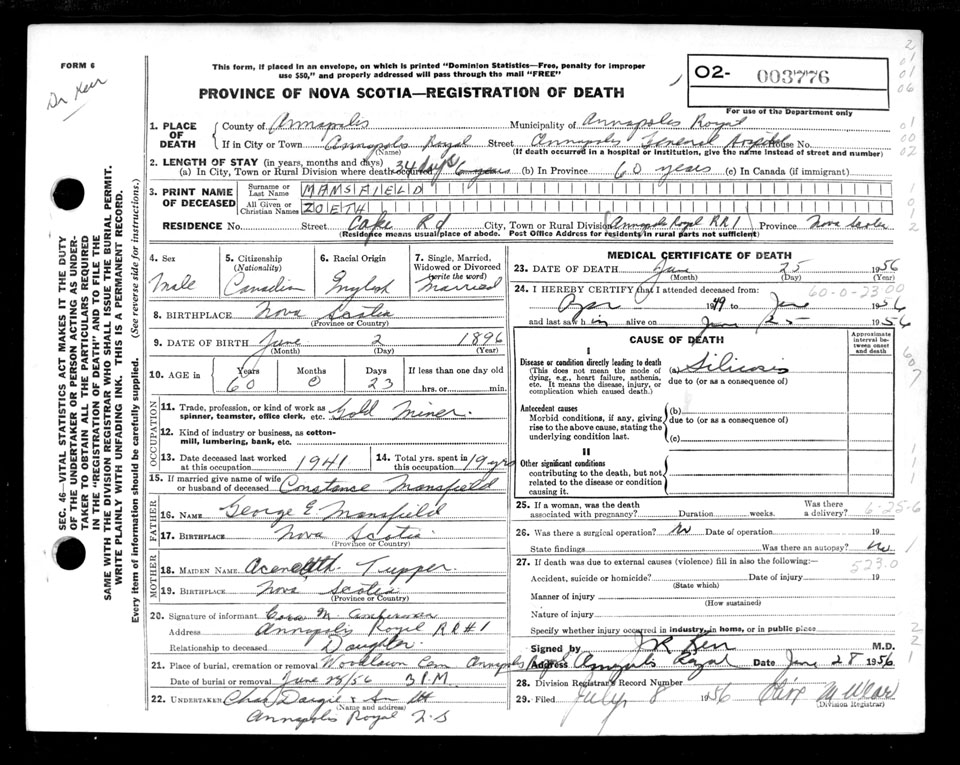 FORM 6
Dr Kerr
This form, if placed in an envelope, on which is printed "Dominion Statistics—Free, penalty for improper
use $50," and properly addressed will pass through the mail "FREE"
PROVINCE OF NOVA SCOTIA—REGISTRATION OF DEATH
O2- 003776
For use of the Department only
SEC. 46—VITAL STATISTICS ACT MAKES IT THE DUTY
OF THE UNDERTAKER OR PERSON ACTING AS UNDER-
TAKER TO OBTAIN ALL THE PARTICULARS REQUIRED
IN THE "REGISTRATION OF DEATH" AND TO FILE THE
SAME WITH THE DIVISION REGISTRAR WHO SHALL ISSUE THE BURIAL PERMIT.
WRITE PLAINLY WITH UNFADING INK. THIS IS A PERMANENT RECORD.
Every item of information should be carefully supplied. (See reverse side for instructions.)
1. PLACE OF DEATH County of Annapolis Municipality of Annapolis Royal
If in City or Town Annapolis Royal Street Annapolis General Hospital House No.
(Name) (If death occurred in a hospital or institution, give the name instead of street and number)
2. LENGTH OF STAY (in years, months and days)
(a) In City, Town or Rural Division where death occurred 34 days 6 years (b) In Province 60 years (c) In Canada (if immigrant)
3. PRINT NAME OF DECEASED Surname or Last Name MANSFIELD
All Given or Christian Names ZOETH
RESIDENCE No. Street Cape Rd City, Town or Rural Division Annapolis Royal RR1 Province Nova Scotia
(Residence means usual place of abode. Post Office Address for residents in rural parts not sufficient)
4. Sex Male
5. Citizenship (Nationality) Canadian
6. Racial Origin English
7. Single, Married, Widowed or Divorced (write the word) Married
8. BIRTHPLACE Nova Scotia
(Province or Country)
9. DATE OF BIRTH June 2 1896
(Month) (Day) (Year)
10. AGE in Years 60 Months 0 Days 23 If less than one day old hrs. or min.
OCCUPATION
11. Trade, profession, or kind of work as spinner, teamster, office clerk, etc. Gold Miner.
12. Kind of industry or business, as cotton-mill, lumbering, bank, etc.
13. Date deceased last worked at this occupation 1941
14. Total yrs. spent in this occupation 19 yrs
15. If married give name of wife or husband of deceased Constance Mansfield
FATHER
16. NAME George E Mansfield
17. BIRTHPLACE Nova Scotia
(Province or Country)
MOTHER
18. MAIDEN NAME Tupper.
19. BIRTHPLACE Nova Scotia
(Province or Country)
20. Signature of informant M.
Address Annapolis Royal RR#1
Relationship to deceased Daughter
21. Place of burial, cremation or removal Woodlawn Cem Annapolis Royal
Date of burial or removal June 28/56 3 P.M.
22. UNDERTAKER Chas Dargie & Son
(Name and address)
Annapolis Royal N.S
MEDICAL CERTIFICATE OF DEATH
23. DATE OF DEATH June 25 1956
(Month) (Day) (Year)
24. I HEREBY CERTIFY that I attended deceased from:
60-0-23 00
1949 to June 1956
and last saw him alive on June 25 1956
CAUSE OF DEATH
Approximate interval between onset and death
I
Disease or condition directly leading to death
(This does not mean the mode of dying, e.g., heart failure, asthenia, etc. It means the disease, injury, or complication which caused death.)
(a) Silicosis
due to (or as a consequence of)
Antecedent causes
Morbid conditions, if any, giving rise to the above cause, stating the underlying condition last.
(b)
due to (or as a consequence of)
(c)
II
Other significant conditions
contributing to the death, but not related to the disease or condition causing it.
25. If a woman, was the death associated with pregnancy? Duration weeks. Was there a delivery?
6-25-6
26. Was there a surgical operation? No Date of operation 19
State findings Was there an autopsy? No
27. If death was due to external causes (violence) fill in also the following:—
523.0
Accident, suicide or homicide? Date of injury 19
(State which)
Manner of injury
(How sustained)
Nature of injury
Specify whether injury occurred in industry, in home, or in public place
Signed by J R Kerr M.D.
Address Annapolis Royal Date June 28 1956
28. Division Registrar's Record Number
29. Filed July 8 1956
(Division Registrar)